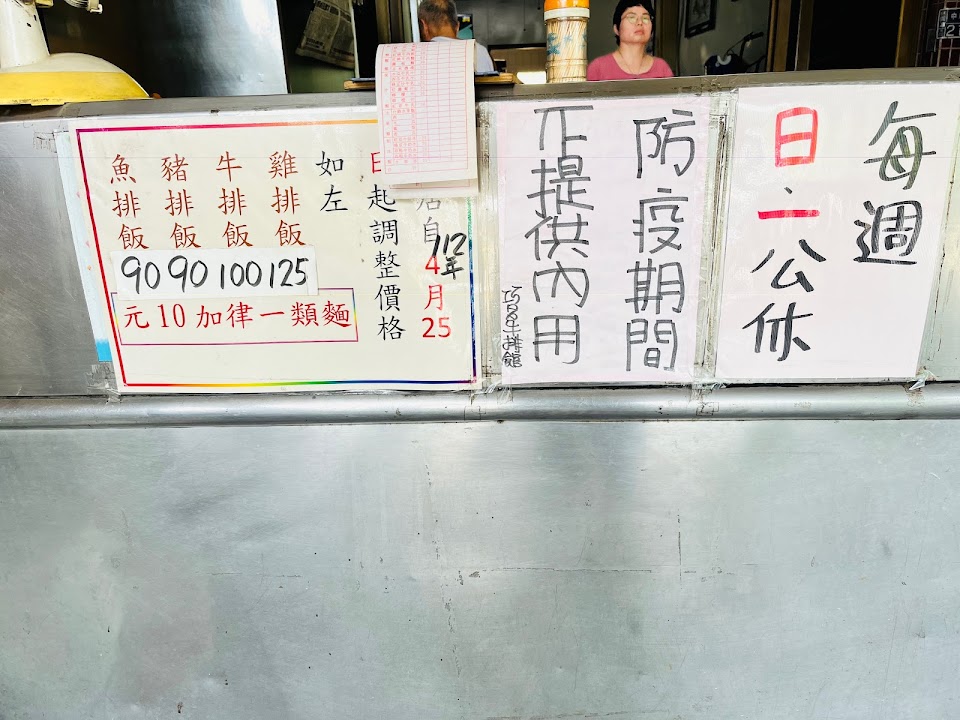 每週
日、一公休
防疫期間
不提供內用
牛排館
店自112年4月25
日起調整價格
如左
雞排飯
125
牛排飯
100
豬排飯
90
魚排飯
90
麵類一律加10元